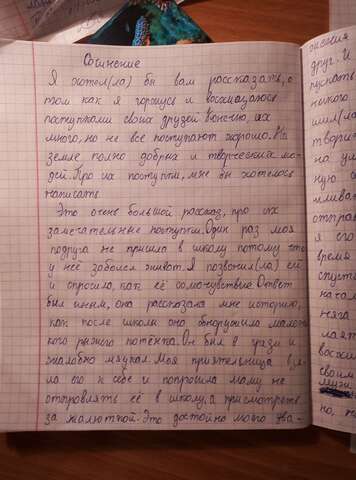 Сочинение
Я хотел(ла) бы вам рассказать, о
том как я горжусь и восхищаюсь
поступками своих друзей. Конечно, их
много, но не все поступают хорошо. На
земле полно добрых и творческих лю-
дей. Про их поступки, мне бы хотелось
написать.
Это очень большой рассказ, про их
замечательные поступки. Один раз моя
подруга не пришла в школу потому что
у неё заболел живот. Я позвонил(ла) ей
и спросила, как её самочувствие. Ответ
был иным, она рассказала мне историю,
как после школы она обнаружила малень-
кого рыжего котёнка. Он был в грязи и
жалобно мяукал. Моя приятельница взя-
ла его к себе и попросила маму не
отправлять её в школу, а присмотреть
за малюткой. Это достойно моего ува-
друг. И
пускать
никого
шил(ла
твори
на ул
ную
отправ
я его
время
спустя
начал
няга
лаят
восхи
своим
но, т